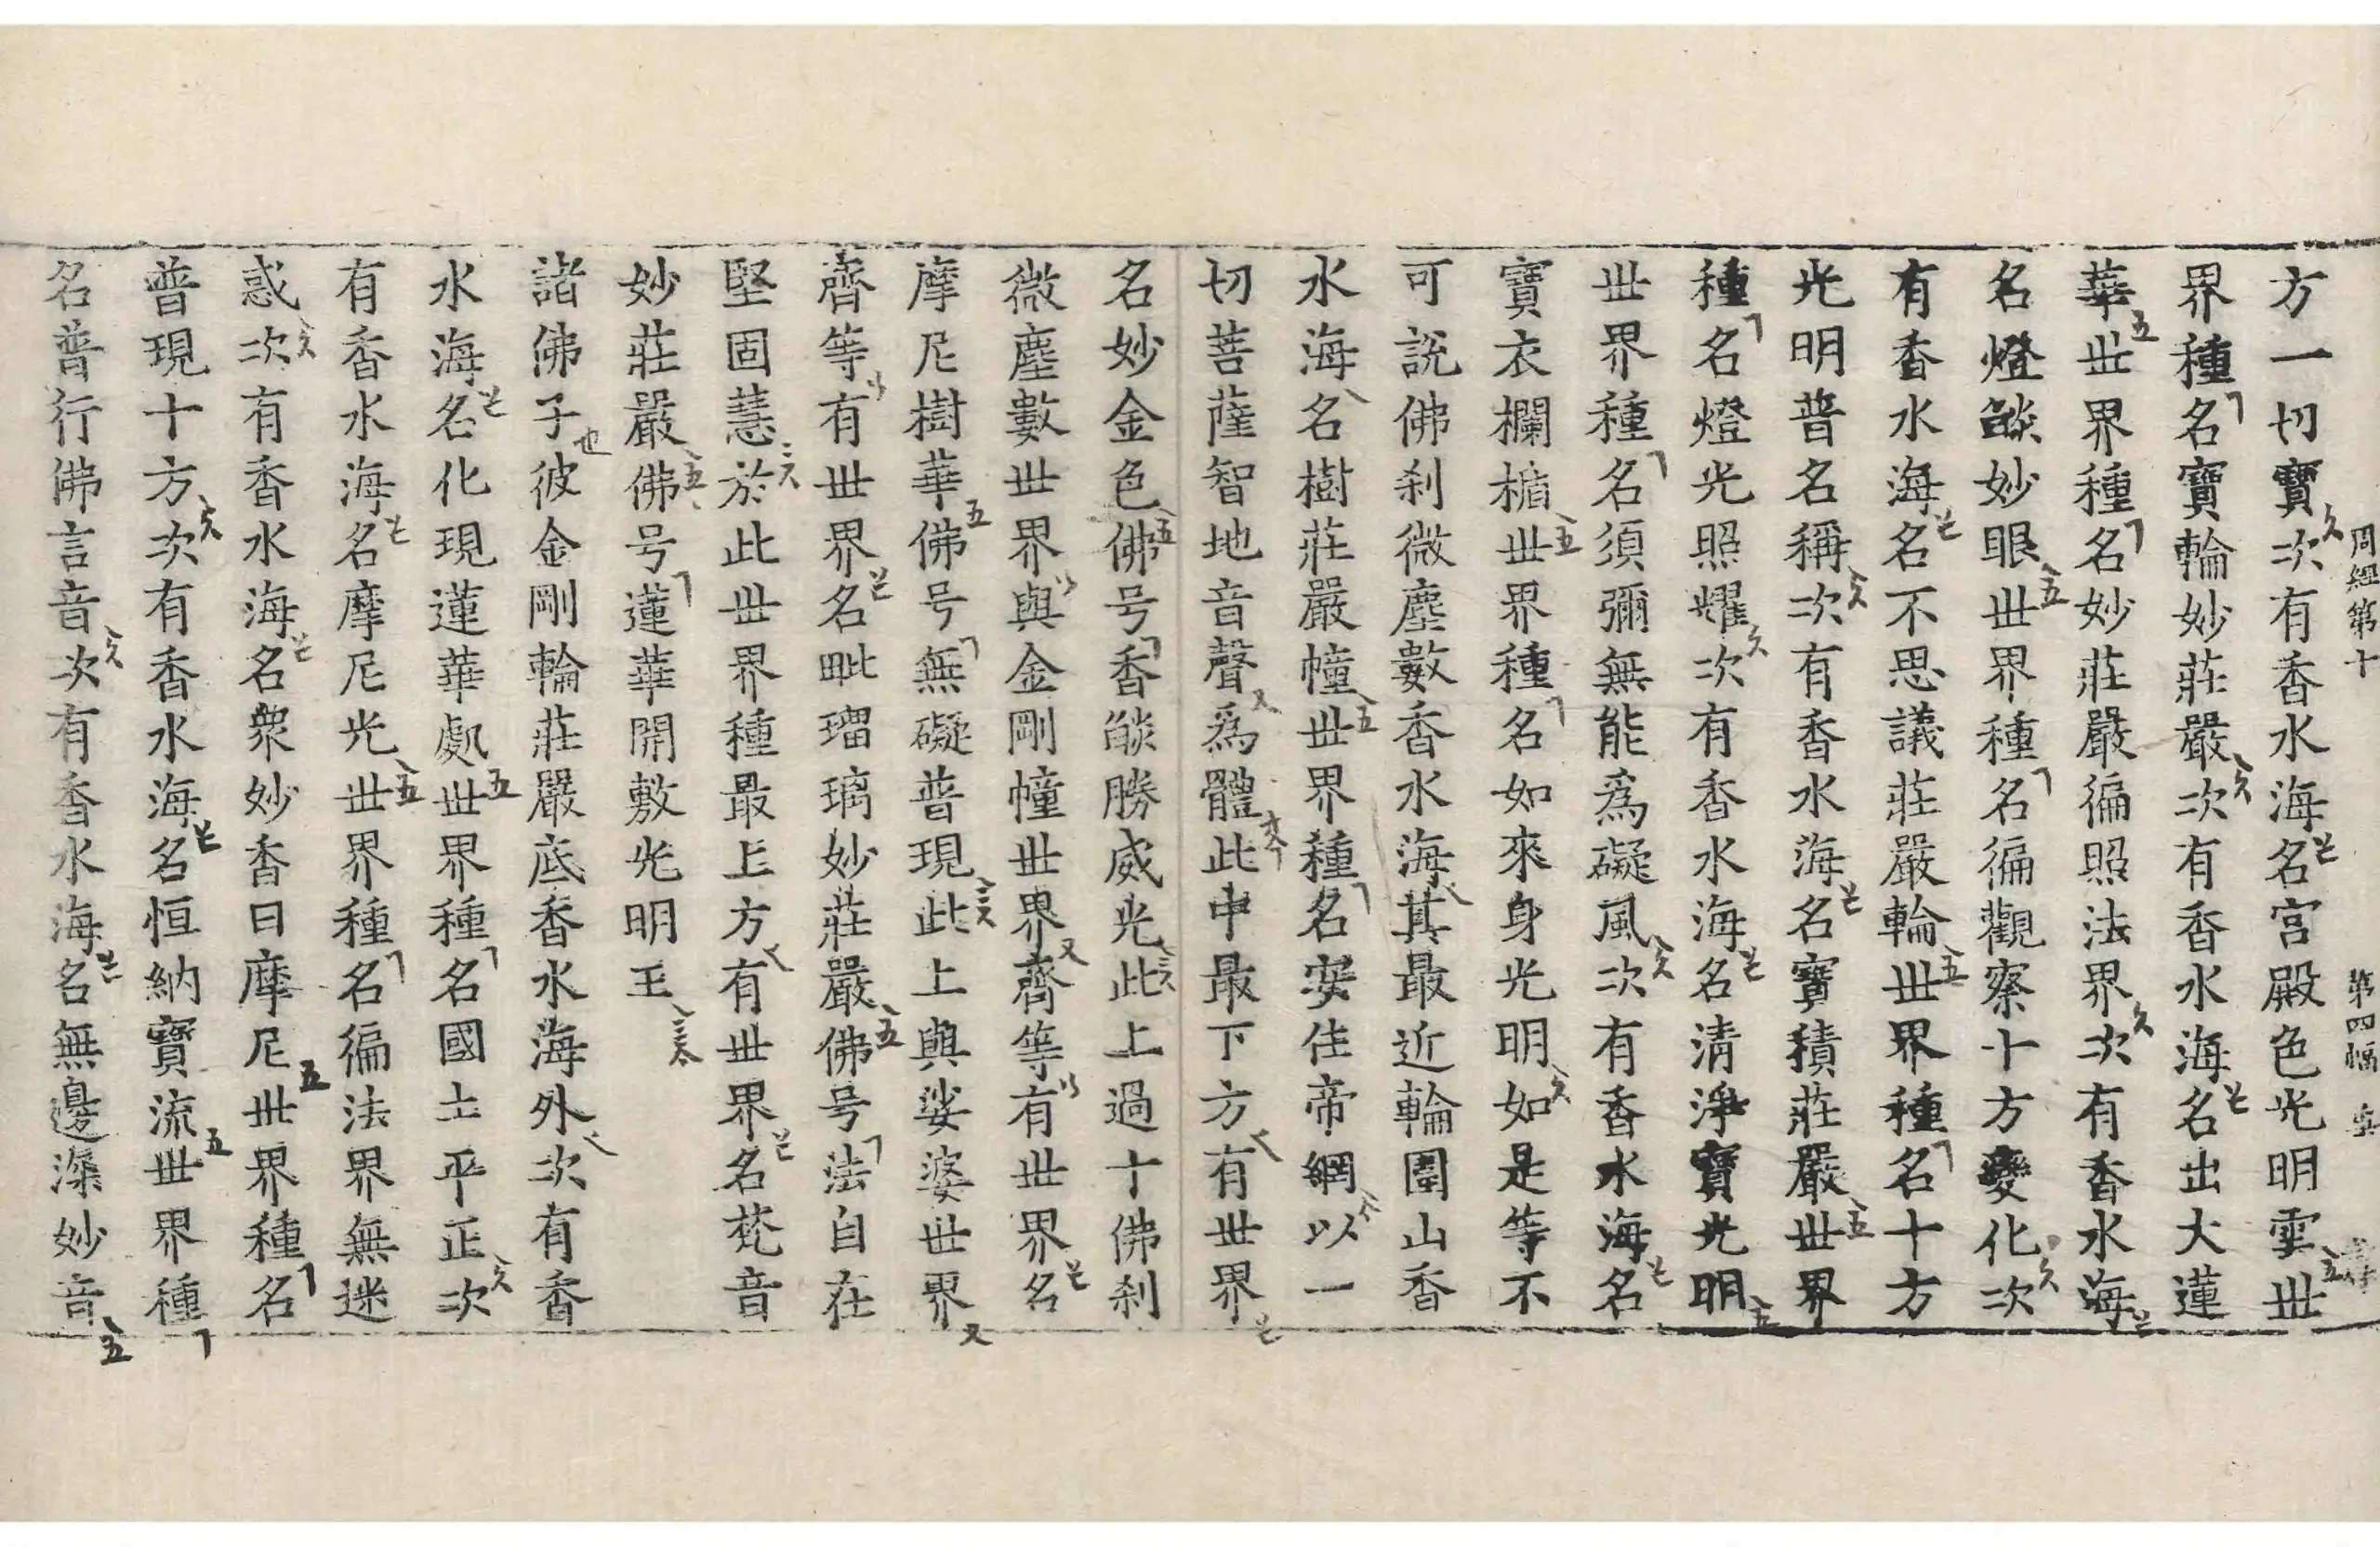 周經第十 第四幅
方一切寶次有香水海名宮殿色光明雲世
界種名寶輪妙莊嚴次有香水海名出大蓮
華世界種名妙莊嚴徧照法界次有香水海
名燈燄妙眼世界種名徧觀察十方變化次
有香水海名不思議莊嚴輪世界種名十方
光明普名稱次有香水海名寶積莊嚴世界
種名燈光照耀次有香水海名清淨寶光明
世界種名須彌無能爲礙風次有香水海名
寶衣欄楯世界種名如來身光明如是等不
可說佛刹微塵數香水海其最近輪圍山香
水海名樹莊嚴幢世界種名安住帝網以一
切菩薩智地音聲爲體此中最下方有世界
名妙金色佛号香燄勝威光此上過十佛刹
微塵數世界與金剛幢世界齊等有世界名
摩尼樹華佛号無礙普現此上與娑婆世界
齊等有世界名毗瑠璃妙莊嚴佛号法自在
堅固慧於此世界種最上方有世界名梵音
妙莊嚴佛号蓮華開敷光明王
諸佛子彼金剛輪莊嚴底香水海外次有香
水海名化現蓮華處世界種名國土平正次
有香水海名摩尼光世界種名徧法界無迷
惑次有香水海名衆妙香日摩尼世界種名
普現十方次有香水海名恒納寶流世界種
名普行佛言音次有香水海名無邊深妙音